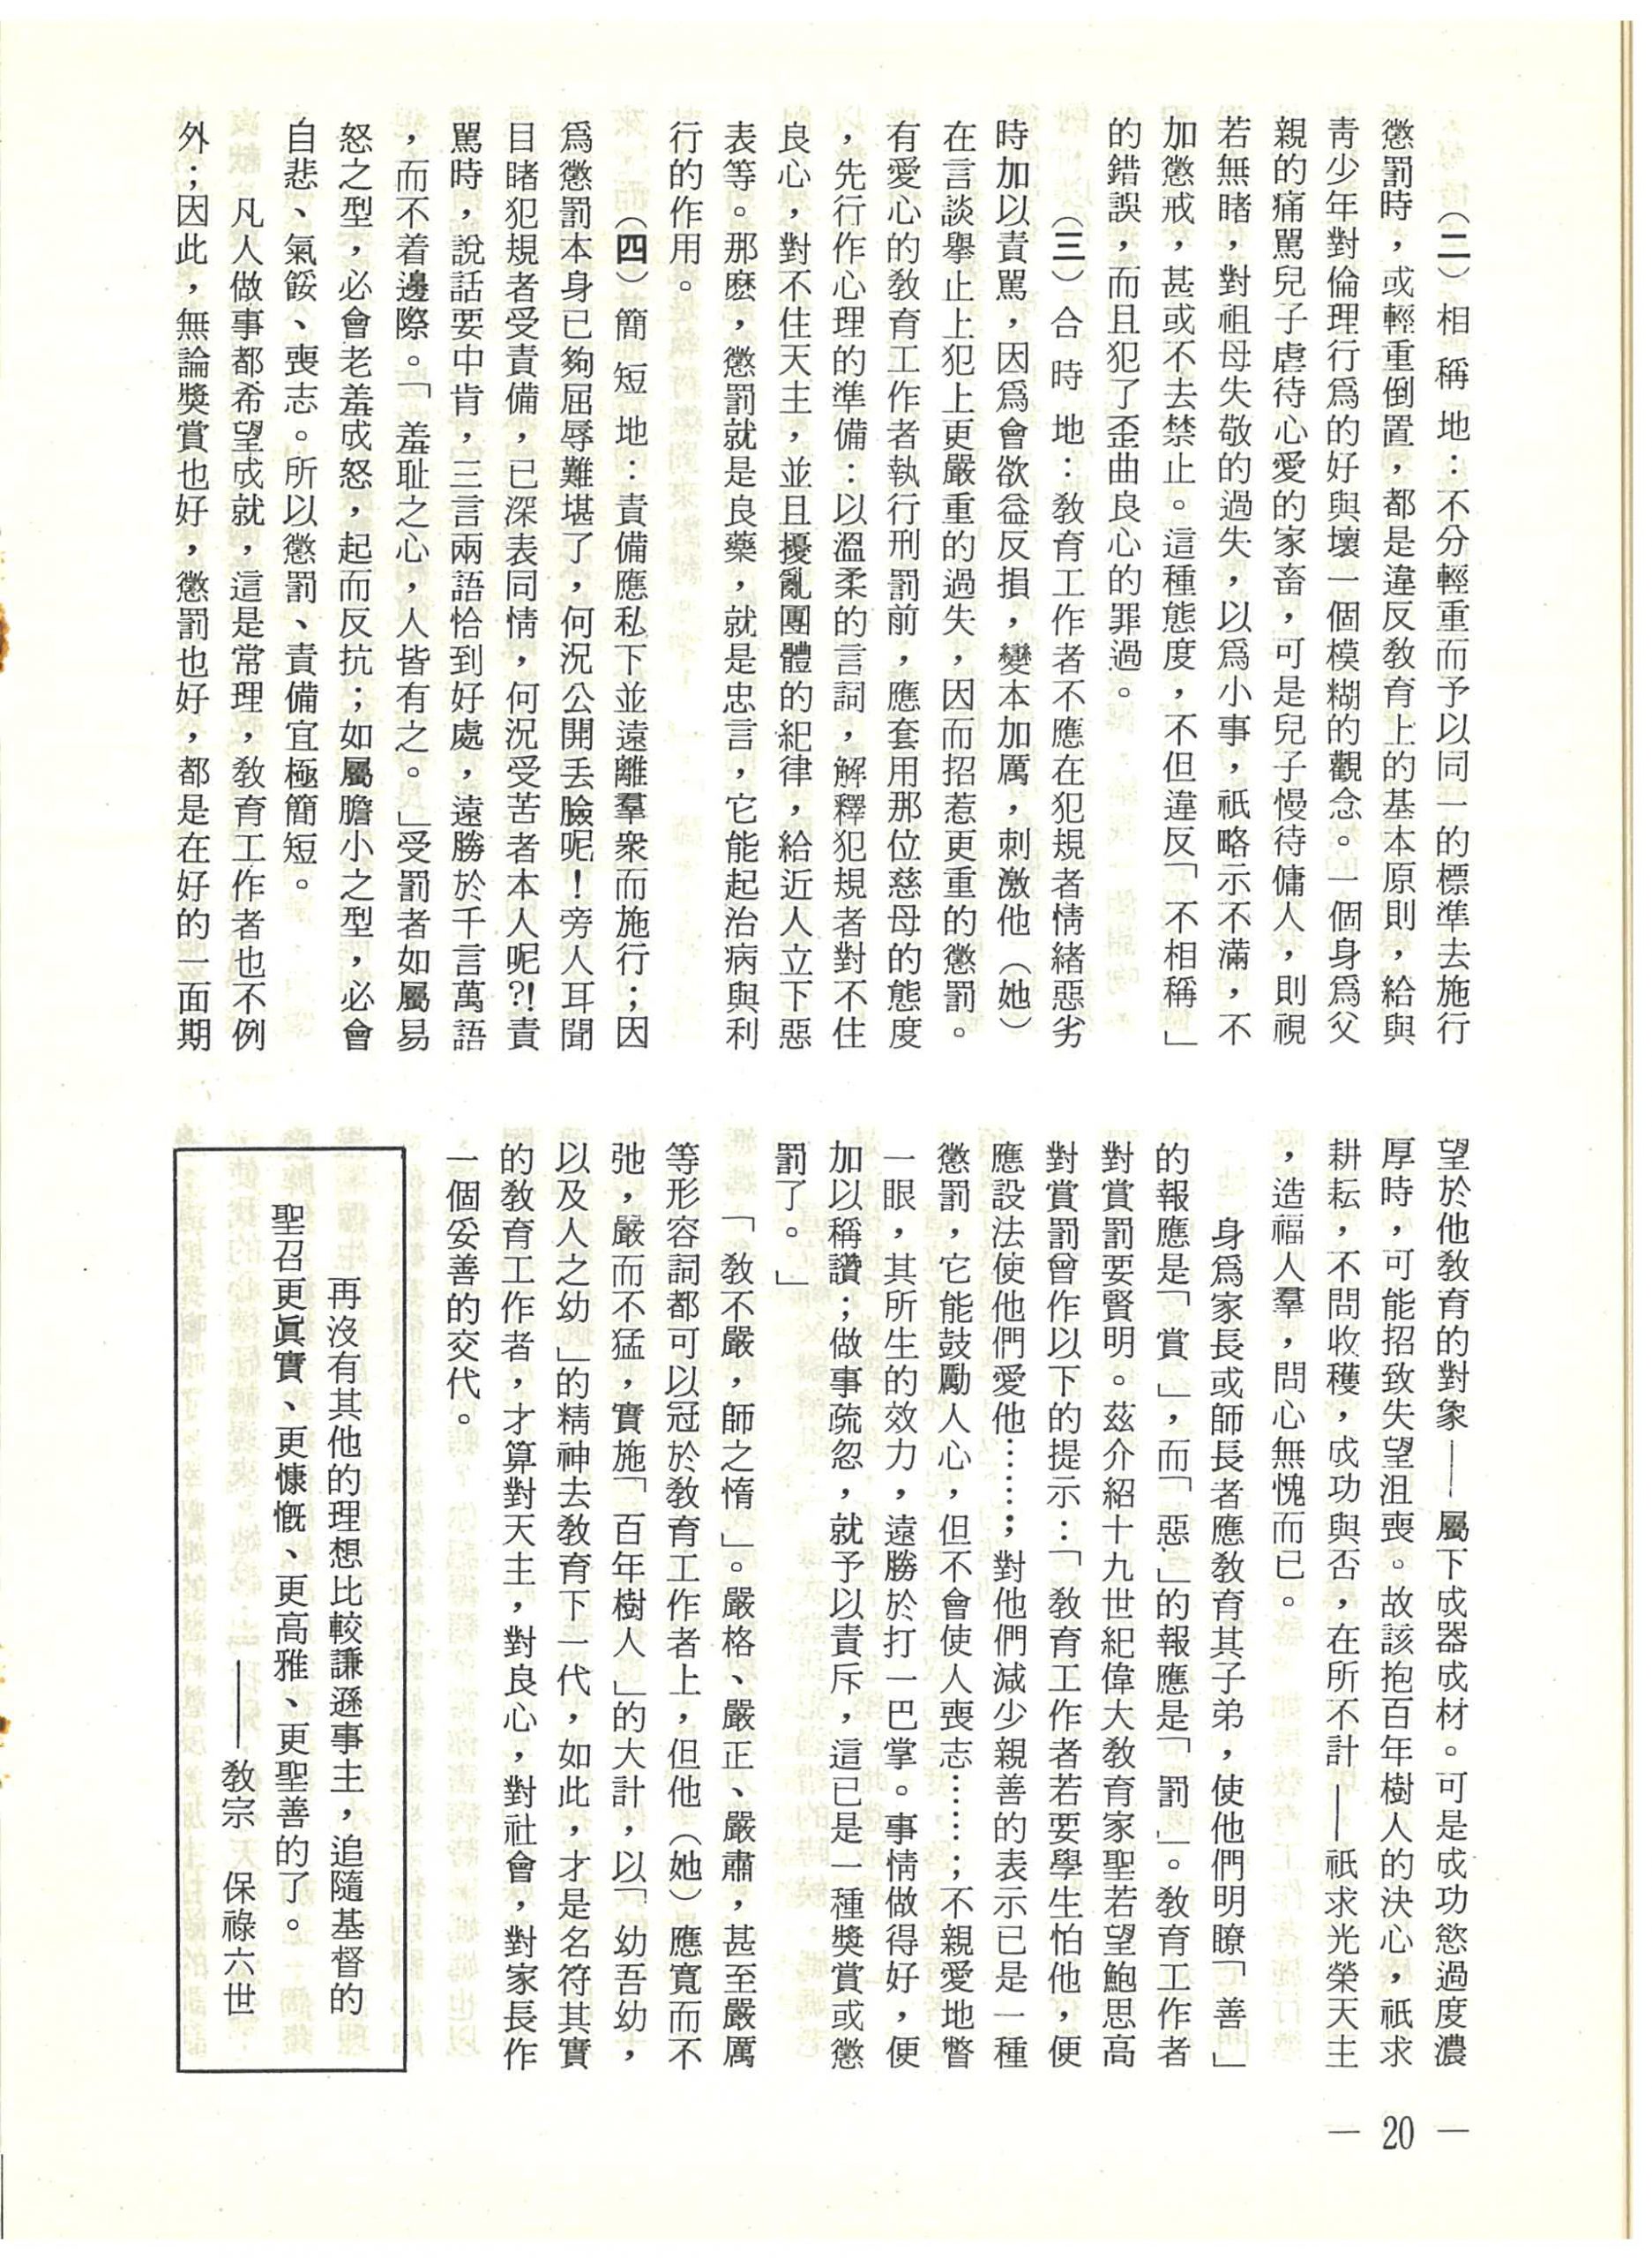 （二）相稱地：不分輕重而予以同一的標準去施行
懲罰時，或輕重倒置，都是違反敎育上的基本原則，給與
靑少年對倫理行爲的好與壞一個模糊的觀念。一個身爲父
親的痛駡兒子虐待心愛的家畜，可是兒子慢待傭人，則視
若無睹，對祖母失敬的過失，以爲小事，祇略示不滿，不
加懲戒，甚或不去禁止。這種態度，不但違反「不相稱」
的錯誤，而且犯了歪曲良心的罪過。
（三）合時地：敎育工作者不應在犯規者情緒惡劣
時加以責駡，因爲會欲益反損，變本加厲，刺激他（她）
在言談擧止上犯上更嚴重的過失，因而招惹更重的懲罰。
有愛心的敎育工作者執行刑罰前，應套用那位慈母的態度
，先行作心理的準備：以溫柔的言詞，解釋犯規者對不住
良心，對不住天主，並且擾亂團體的紀律，給近人立下惡
表等。那麼，懲罰就是良藥，就是忠言，它能起治病與利
行的作用。
（四）簡短地：責備應私下並遠離羣衆而施行；因
爲懲罰本身已夠屈辱難堪了，何況公開丢臉呢！旁人耳聞
目睹犯規者受責備，已深表同情，何況受苦者本人呢?!責
駡時，說話要中肯，三言兩語恰到好處，遠勝於千言萬語
，而不着邊際。「羞耻之心，人皆有之。」受罰者如屬易
怒之型，必會老羞成怒，起而反抗；如屬膽小之型，必會
自悲、氣餒、喪志。所以懲罰、責備宜極簡短。
凡人做事都希望成就，這是常理，敎育工作者也不例
外；因此，無論獎賞也好，懲罰也好，都是在好的一面期
望於他敎育的對象——屬下成器成材。可是成功慾過度濃
厚時，可能招致失望沮喪。故該抱百年樹人的決心，祇求
耕耘，不問收穫，成功與否，在所不計——祇求光榮天主
，造福人羣，問心無愧而已。
身爲家長或師長者應敎育其子弟，使他們明瞭「善」
的報應是「賞」，而「惡」的報應是「罰」。敎育工作者
對賞罰要賢明。茲介紹十九世紀偉大敎育家聖若望鮑思高
對賞罰曾作以下的提示：「敎育工作者若要學生怕他，便
應設法使他們愛他……；對他們減少親善的表示已是一種
懲罰，它能鼓勵人心，但不會使人喪志……；不親愛地瞥
一眼，其所生的效力，遠勝於打一巴掌。事情做得好，便
加以稱讚；做事疏忽，就予以責斥，這已是一種獎賞或懲
罰了。」
「敎不嚴，師之惰」。嚴格、嚴正、嚴肅，甚至嚴厲
等形容詞都可以冠於敎育工作者上，但他（她）應寬而不
弛，嚴而不猛，實施「百年樹人」的大計，以「幼吾幼，
以及人之幼」的精神去敎育下一代，如此，才是名符其實
的敎育工作者，才算對天主，對良心，對社會，對家長作
一個妥善的交代。
再沒有其他的理想比較謙遜事主，追隨基督的
聖召更眞實、更慷慨、更高雅、更聖善的了。
——敎宗　保祿六世
— 20 —